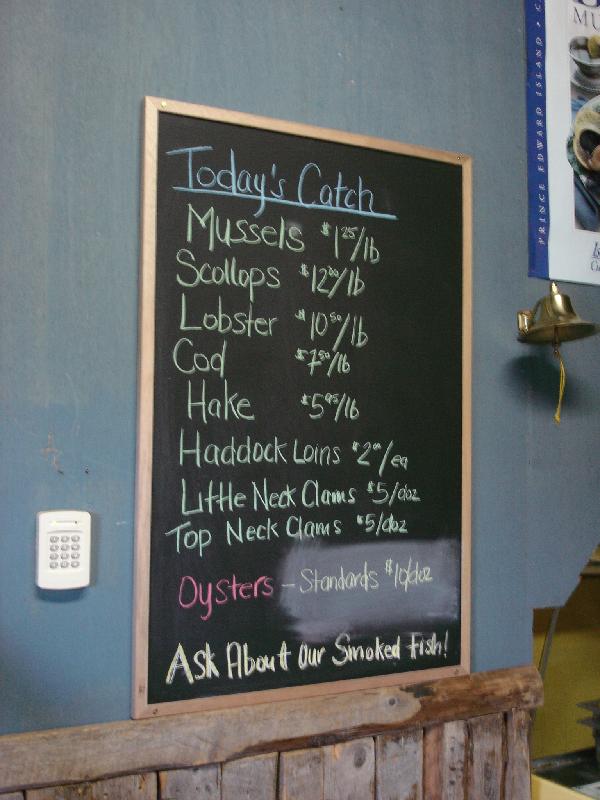 Today's Catch
Mussels $1.25/lb
Scollops $12.00/lb
Lobster $10.50/lb
Cod $7.50/lb
Hake $5.95/lb
Haddock Loins $2.00/ea
Little Neck Clams $5/doz
Top Neck Clams $5/doz
Oysters - Standards $10/doz
Ask About Our Smoked Fish!
MU
PRINCE EDWARD ISLAND